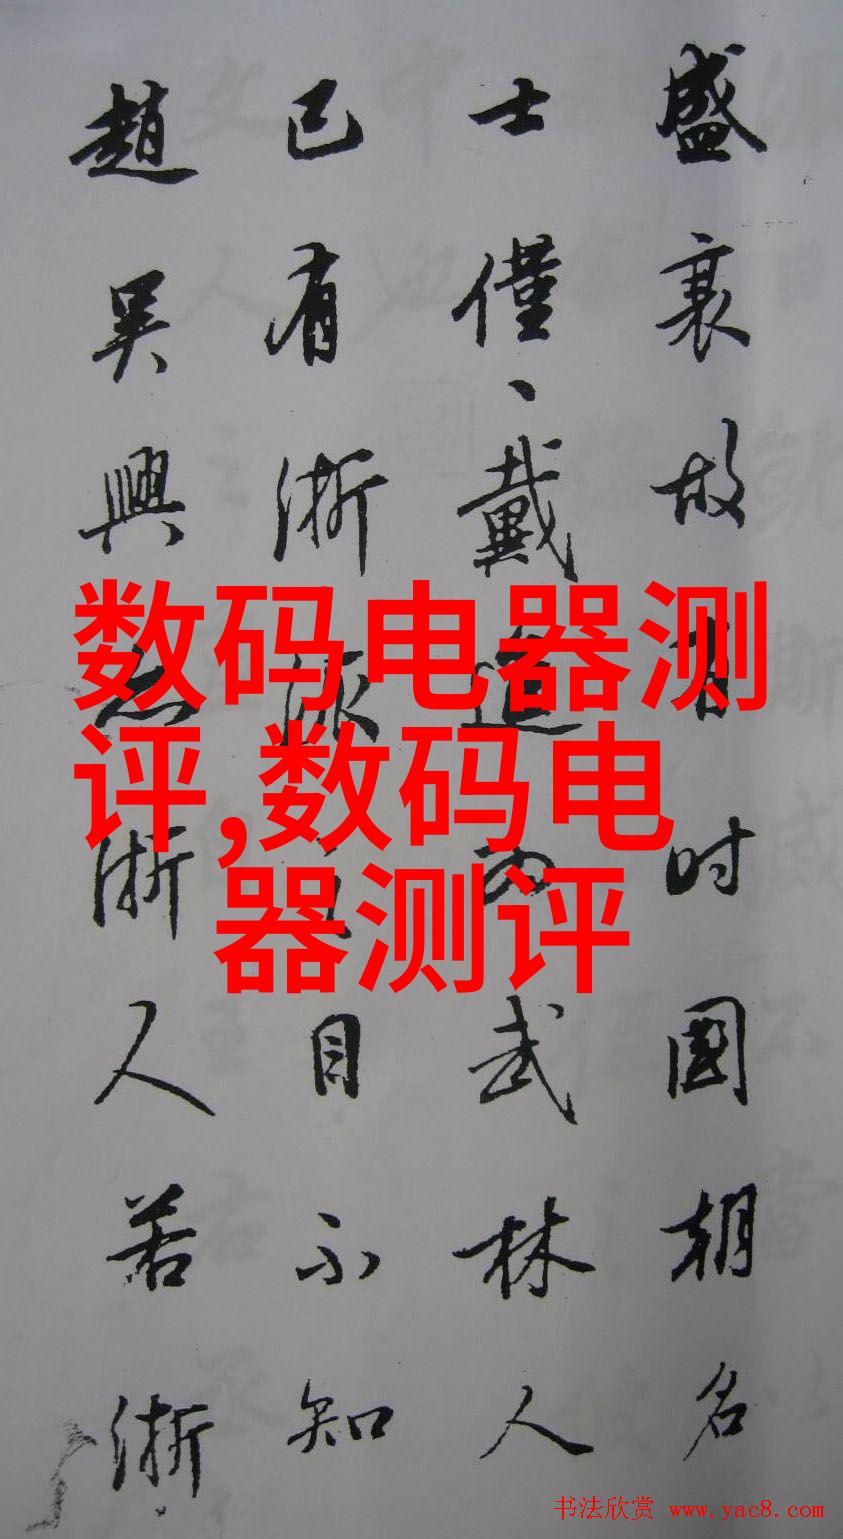 盛衰故有时國朝名
士僅、戴進為武林人
已有浙派之目不知
趙吳興亦浙人若浙
数码电器测
评,数码电
器测评
书法欣赏 www.yac8.com